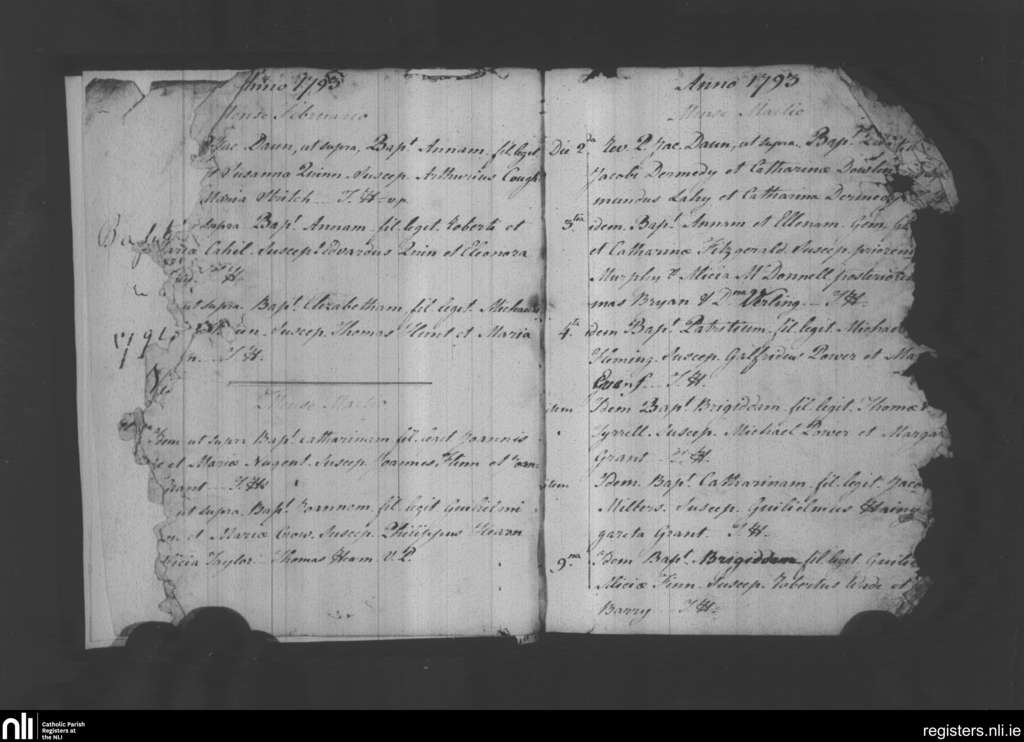 Anno 1793
Mense Februario
Jac. Daun, ut supra, Bapt. Annam fil legt
et Susanna Quinn. Suscep. Arthurius Cough
Maria Stritch _ T. H. vp
supra Bapt. Annam fil. legit. Roberti et
Maria Cahil. Suscept. Edvardus Quin et Eleonora
T. H.
ut supra Bapt. Elizabetham, fil. legit. Michaelis
Suscep. Thomas et Maria
T. H.
1794
Mense Martio
Idem ut supra Bapt. Catharinam fil. legit Joannis
et Mariæ Nugent. Suscep. Joannes Flinn et Joan
Grant _ T. H.
ut supra Bapt. Joannem fil. legit Guilielmi
et Mariæ Crow. Suscep. Philippus Hearn
Alicia Taylor. Thomas Ham V. P.
Anno 1793
Mense Martio
Die 2da Rev. P. Jac. Daun, ut supra, Bapt.
Jacobi Dermedy et Catharinæ Dowlin
mundus Lahy et Catharina Dermedy
3tia idem Bapt. Annam et Ellenam Gem.
et Catharinæ Fitzgerald. Suscep. priorem
Murphy & Alicia McDonnell posterioris
mas Bryan & Dma Verling _ T. H.
4ta idem Bapt. Patritium fil. legit. Michae
Fleming. Suscep. Galfridus Power et Ma
Evans _ T. H.
idem Idem Bapt. Brigiddam fil. legit. Thomæ
Tyrrell. Suscep. Michael Power et Marga
Grant _ T. H.
idem Idem Bapt. Catharinam fil. legit. Jaco
Milbers. Suscep. Guilielmus
gareta Grant. T. H.
9na Idem Bapt. Brigiddam fil. legit. Guilie
Aliciæ Finn. Suscep. Robertus Wade et
Barry _ T. H.
nli
Catholic Parish
Registers at
the NLI
registers.nli.ie